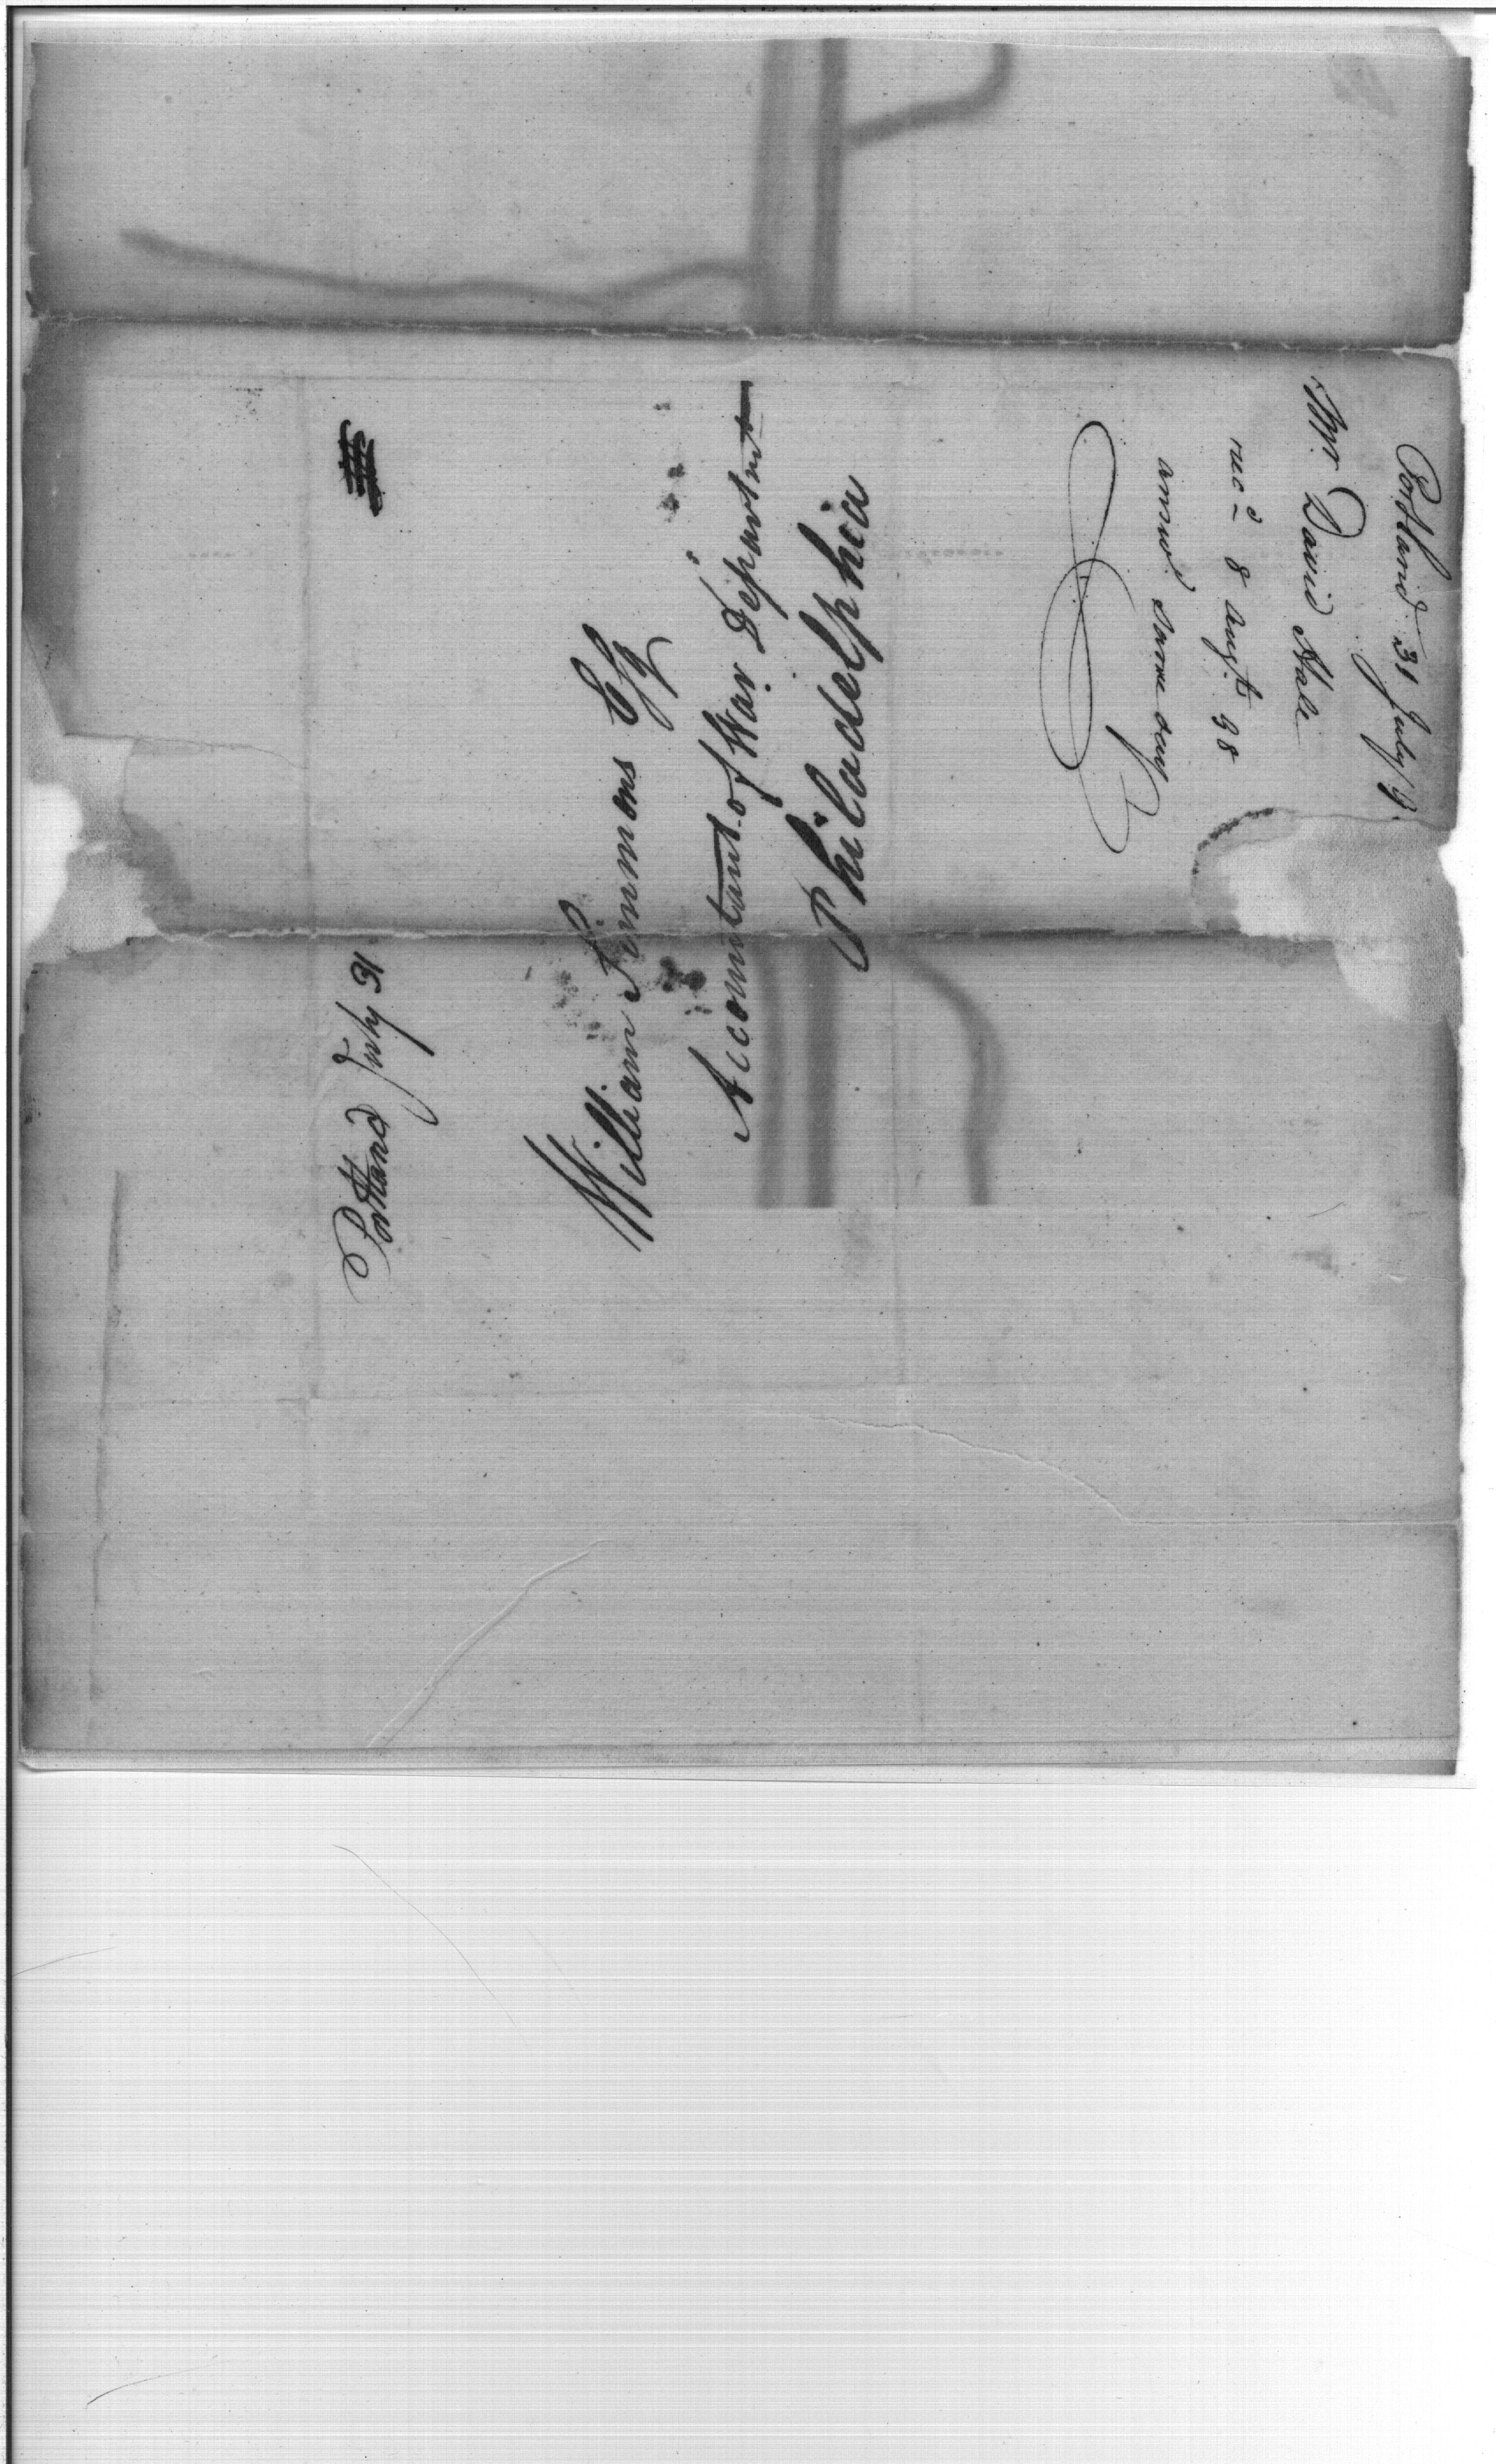 Portland July 31
William Simmons Esq
Accountant of War Departmt
Philadelphia
Portland 31 July 9
Mr David Hale
recd 8 augt 98
answd same day